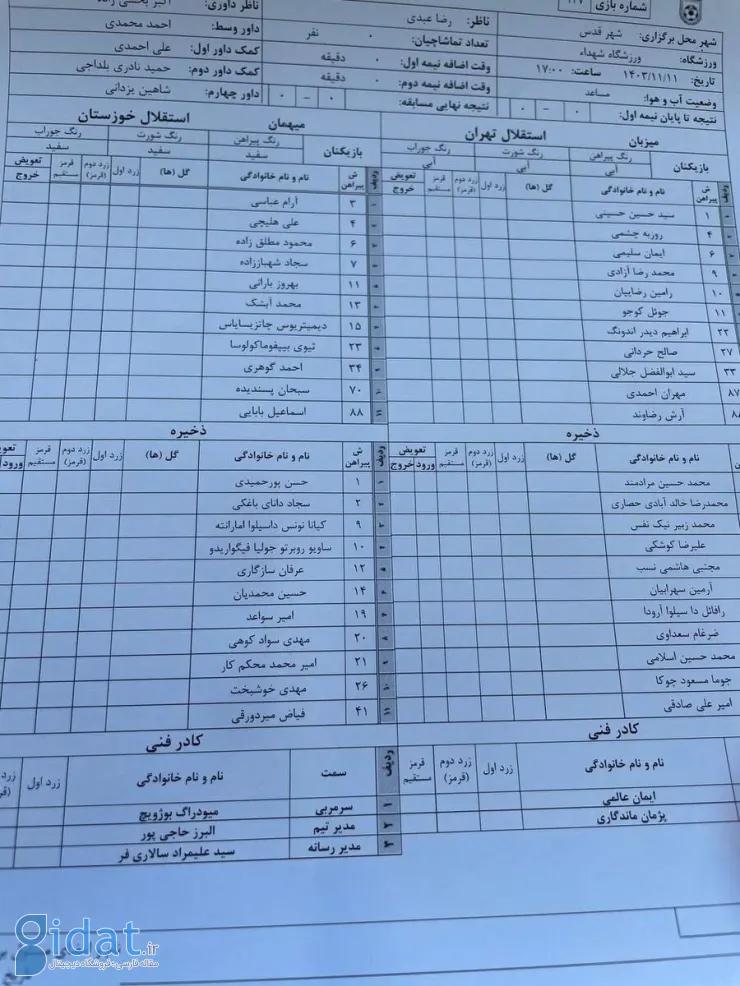 شماره بازی
ناظر: رضا عبدی
ناظر داوری:
شهر محل برگزاری: شهر قدس
تعداد تماشاچیان: ۰ نفر
داور وسط: احمد محمدی
ورزشگاه: ورزشگاه شهداء
وقت اضافه نیمه اول: ۰ دقیقه
کمک داور اول: علی احمدی
تاریخ: ۱۴۰۳/۱۱/۱۱ ساعت: ۱۷:۰۰
وقت اضافه نیمه دوم: ۰ دقیقه
کمک داور دوم: حمید نادری بلداجی
وضعیت آب و هوا: مساعد
نتیجه نهایی مسابقه: ۰ - ۰
داور چهارم: شاهین یزدانی
نتیجه تا پایان نیمه اول: ۰ - ۰
میزبان استقلال تهران
بازیکنان
رنگ پیراهن رنگ شورت رنگ جوراب
آبی آبی آبی
ردیف ش پیراهن نام و نام خانوادگی گل (ها) زرد اول زرد دوم (قرمز) قرمز مستقیم تعویض خروج
۱ سید حسین حسینی
۴ روزبه چشمی
۶ ایمان سلیمی
۹ محمد رضا آزادی
۱۰ رامین رضاییان
۱۱ جوئل کوجو
۲۲ ابراهیم دیدر اندونگ
۲۷ صالح حردانی
۳۳ سید ابوالفضل جلالی
۸۷ مهران احمدی
آرش رضاوند
ذخیره
نام و نام خانوادگی گل (ها) زرد اول زرد دوم (قرمز) قرمز مستقیم تعویض ورود خروج
محمد حسین مرادمند
محمدرضا خالد آبادی حصاری
محمد زبیر نیک نفس
علیرضا کوشکی
مجتبی هاشمی نسب
آرمین سهرابیان
رافائل دا سیلوا آرودا
ضرغام سعداوی
محمد حسین اسلامی
جوما مسعود چوکا
امیر علی صادقی
کادر فنی
نام و نام خانوادگی زرد اول زرد دوم (قرمز) قرمز مستقیم
ایمان عالمی
پژمان ماندگاری
میهمان استقلال خوزستان
بازیکنان
رنگ پیراهن رنگ شورت رنگ جوراب
سفید سفید سفید
ردیف ش پیراهن نام و نام خانوادگی گل (ها) زرد اول زرد دوم (قرمز) قرمز مستقیم تعویض خروج
۳ آرام عباسی
۴ علی هلیچی
۶ محمود مطلق زاده
۷ سجاد شهباززاده
۱۱ بهروز بارانی
۱۳ محمد آبشک
۱۵ دیمیتریوس چانزیساپاس
۲۳ تیوی بیفوماکولوسا
۳۴ احمد گوهری
۷۰ سبحان پسندیده
۸۸ اسماعیل بابایی
ذخیره
ردیف ش پیراهن نام و نام خانوادگی گل (ها) زرد اول زرد دوم (قرمز) قرمز مستقیم ورود
۱ حسن پورحمیدی
۲ سجاد دانای باغکی
۹ کیانا نونس داسیلوا امارانته
۱۰ ساویو روبرتو جولیا فیگواریدو
۱۲ عرفان سازگاری
۱۴ حسین محمدیان
۱۹ امیر سواعد
۲۰ مهدی سواد کوهی
۲۱ امیر محمد محکم کار
۲۶ مهدی خوشبخت
۴۱ فیاض میردورقی
کادر فنی
ردیف سمت نام و نام خانوادگی زرد اول
۱ سرمربی میودراگ بوژوویچ
۲ مدیر تیم البرز حاجی پور
۳ مدیر رسانه سید علیمراد سالاری فر
gidat.ir
مقاله فارسی - فروشگاه دیجیتال